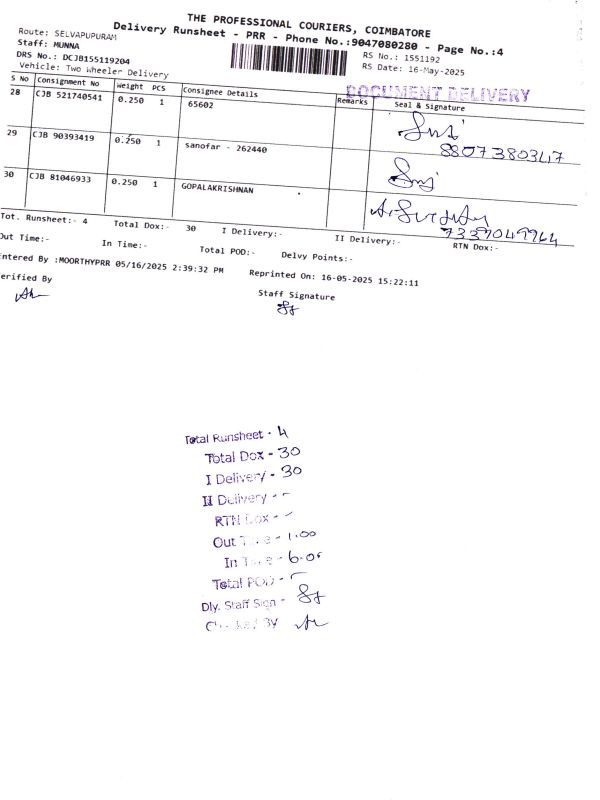 THE PROFESSIONAL COURIERS, COIMBATORE
Delivery Runsheet - PRR - Phone No.:9047080280 - Page No.:4
Route: SELVAPUPURAM
Staff: MUNNA
DRS No.: DCJB155119204
Vehicle: Two Wheeler Delivery
RS No.: 1551192
RS Date: 16-May-2025
DOCUMENT DELIVERY
S No Consignment No Weight PCS Consignee Details Remarks Seal & Signature
28 CJB 521740541 0.250 1 65602
8807380347
29 CJB 90393419 0.250 1 sanofar - 262440
30 CJB 81046933 0.250 1 GOPALAKRISHNAN
7337049764
Tot. Runsheet:- 4 Total Dox:- 30 I Delivery:- II Delivery:- RTN Dox:-
Out Time:- In Time:- Total POD:- Delvy Points:-
Entered By :MOORTHYPRR 05/16/2025 2:39:32 PM Reprinted On: 16-05-2025 15:22:11
erified By Staff Signature
Total Runsheet - 4
Total Dox - 30
I Delivery - 30
II Delivery - -
RTN Dox - -
Out Time - 1.00
In Time -
Total POD - -
Dly. Staff Sign -
Checked By